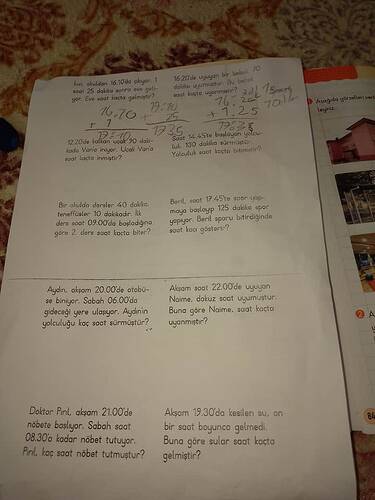 Anıl, okuldan 16.10'da çıkıyor. 1
saat 25 dakika sonra eve geli-
yor. Eve saat kaçta gelmiştir?
16.10
+ 1
17:10
17:10
25
17.35
16.20'de uyuyan bir bebek
dakika uyumuştur. Bu bebek
saat kaçta uyanmıştır?
+ 1.25
12.20'de kalkan uçak 90 daki-
kada Van'a iniyor. Uçak Van'a
saat kaçta inmiştir?
Saat 14.45'te başlayan yolcu-
luk 130 dakika sürmüştür.
Yolculuk saat kaçta bitmiştir?
Bir okulda dersler 40 dakika,
teneffüsler 10 dakikadır. İlk
ders saat 09.00'da başladığına
göre 2. ders saat kaçta biter?
Beril, saat 17.45'te spor yap-
maya başlayıp 125 dakika spor
yapıyor. Beril sporu bitirdiğinde
saat kaçı gösterir?
Aydın, akşam 20.00'de otobü-
se biniyor. Sabah 06.00'da
gideceği yere ulaşıyor. Aydın'ın
yolculuğu kaç saat sürmüştür?
Akşam saat 22.00'de uyuyan
Naime, dokuz saat uyumuştur.
Buna göre Naime, saat kaçta
uyanmıştır?
Doktor Pırıl, akşam 21.00'de
nöbete başlıyor. Sabah saat
08.30'a kadar nöbet tutuyor.
Pırıl, kaç saat nöbet tutmuştur?
Akşam 19.30'da kesilen su, on
bir saat boyunca gelmedi.
Buna göre sular saat kaçta
gelmiştir?
Aşağıda görselleri veri
2 A
84